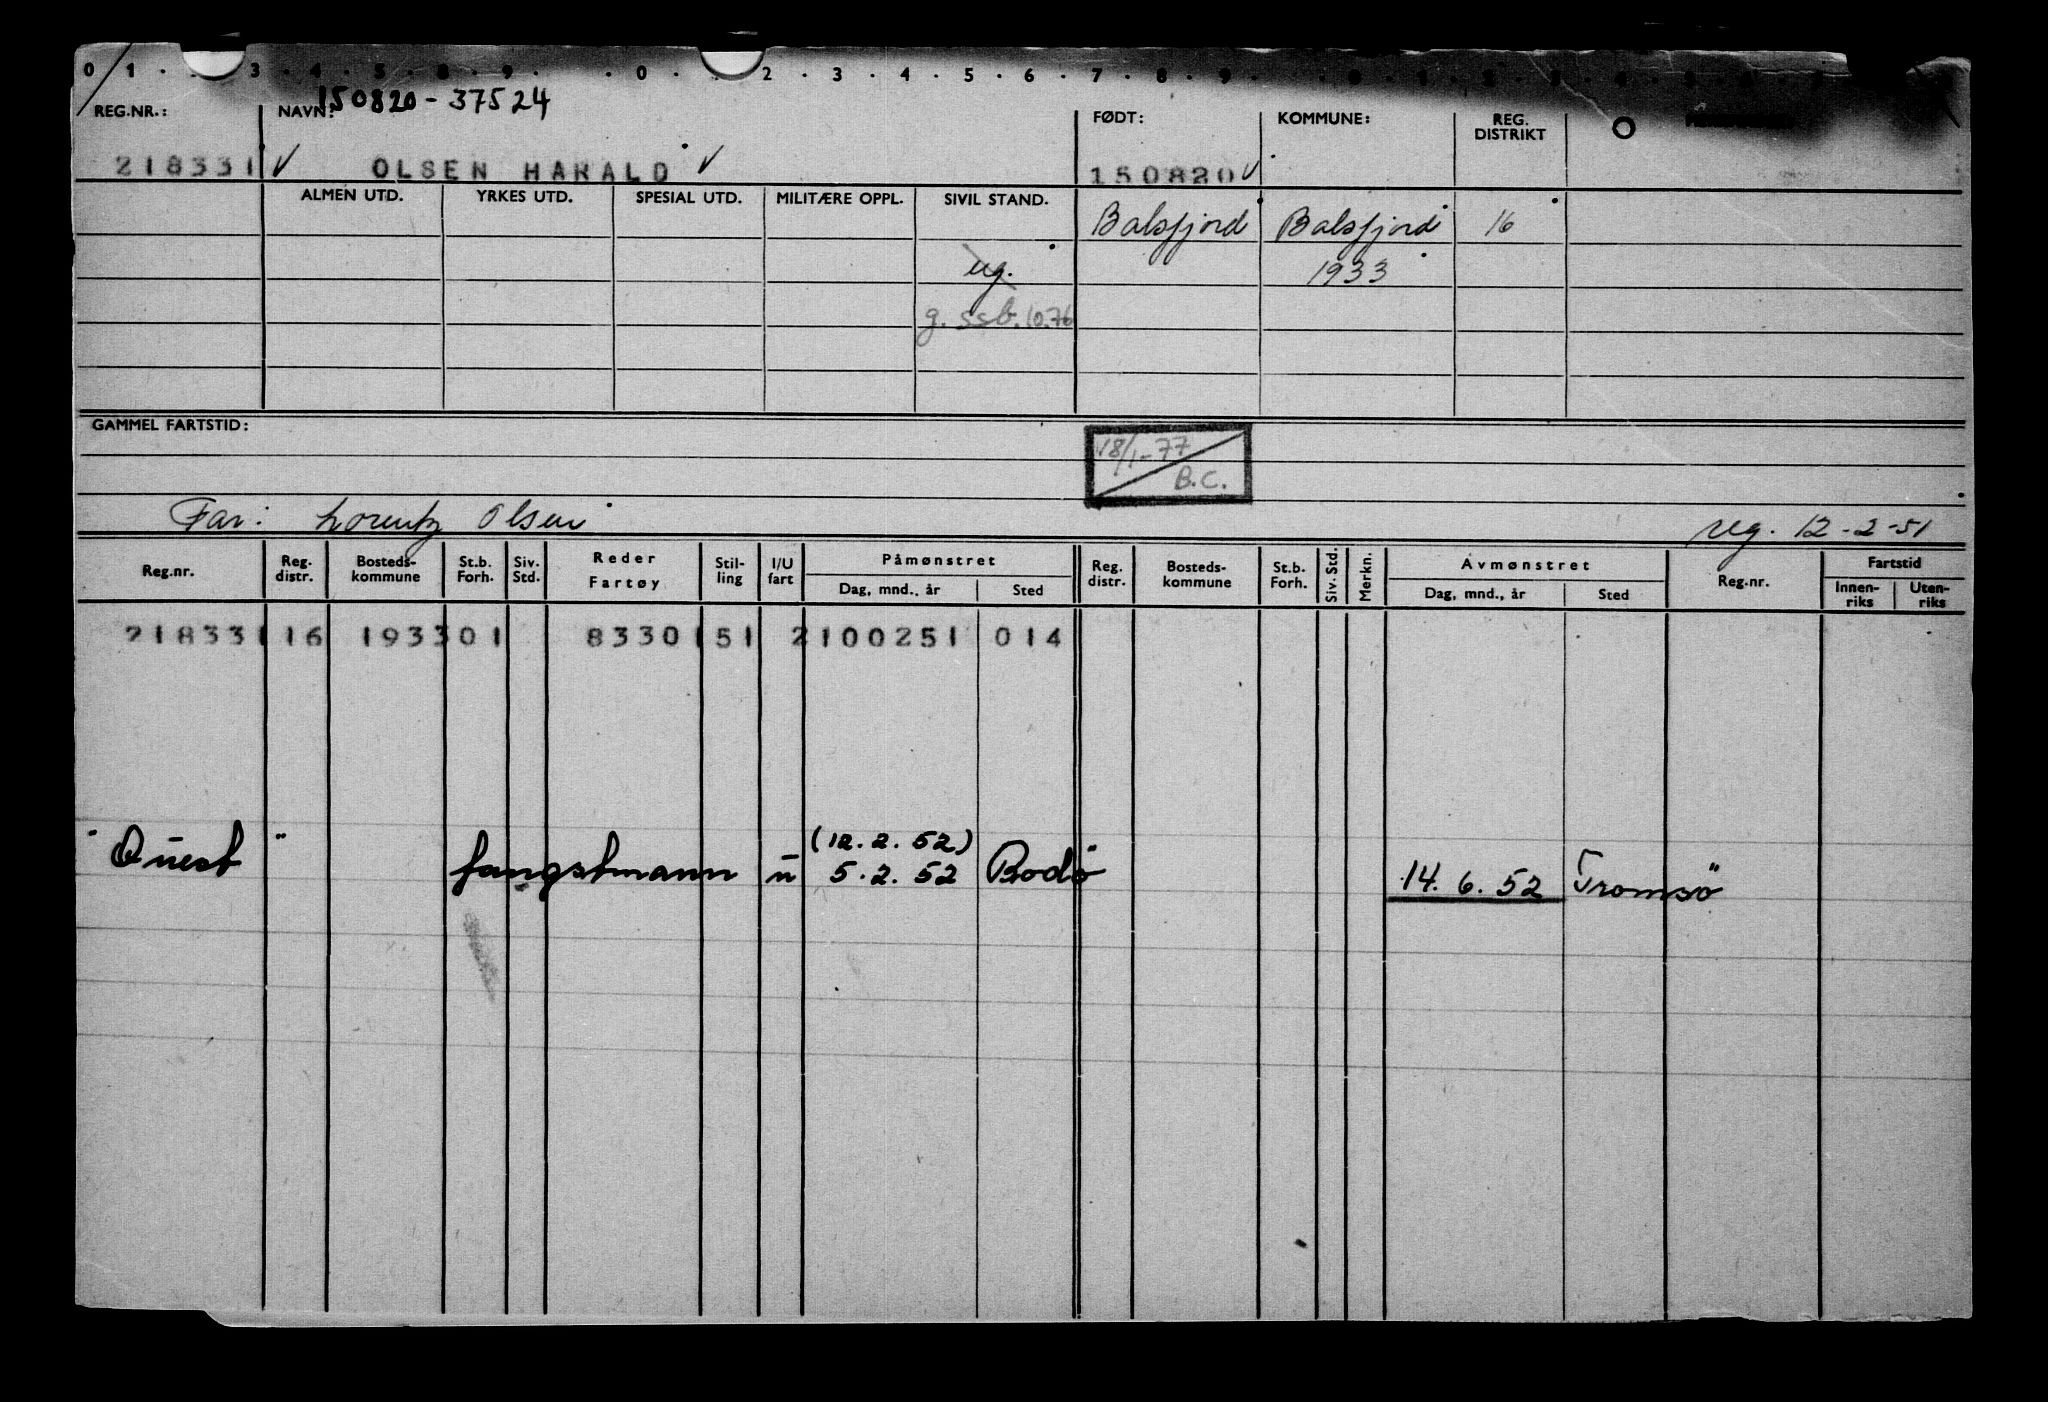 0 1 . . 3 . 4 . 5 . 8 . 9 . . 0 . 2 . 3 . 4 . 5 . 6 . 7 . 8 . 9 .
150820-37524
REG.NR.: NAVN: FØDT: KOMMUNE: REG. DISTRIKT
218331 ✓ OLSEN HARALD ✓ 150820 ✓
ALMEN UTD. YRKES UTD. SPESIAL UTD. MILITÆRE OPPL. SIVIL STAND.
Balsfjord Balsfjord 16
ug. 1933
g. ssb. 10.76
GAMMEL FARTSTID:
18/1-77
B.C.
Far: Lorentz Olsen reg. 12-2-51
Reg.nr. Reg. distr. Bosteds- kommune St.b. Forh. Siv. Std. Reder Fartøy Stil- ling I/U fart Påmønstret Dag, mnd., år Sted Reg. distr. Bosteds- kommune St.b. Forh. Siv. Std. Merkn. Avmønstret Dag, mnd., år Sted Reg.nr. Fartstid Innen- riks Uten- riks
218331 16 1933 01 83301 51 2 100251 014
(12.2.52)
"Quest" fangstmann u 5.2.52 Bodö 14.6.52 Tromsö